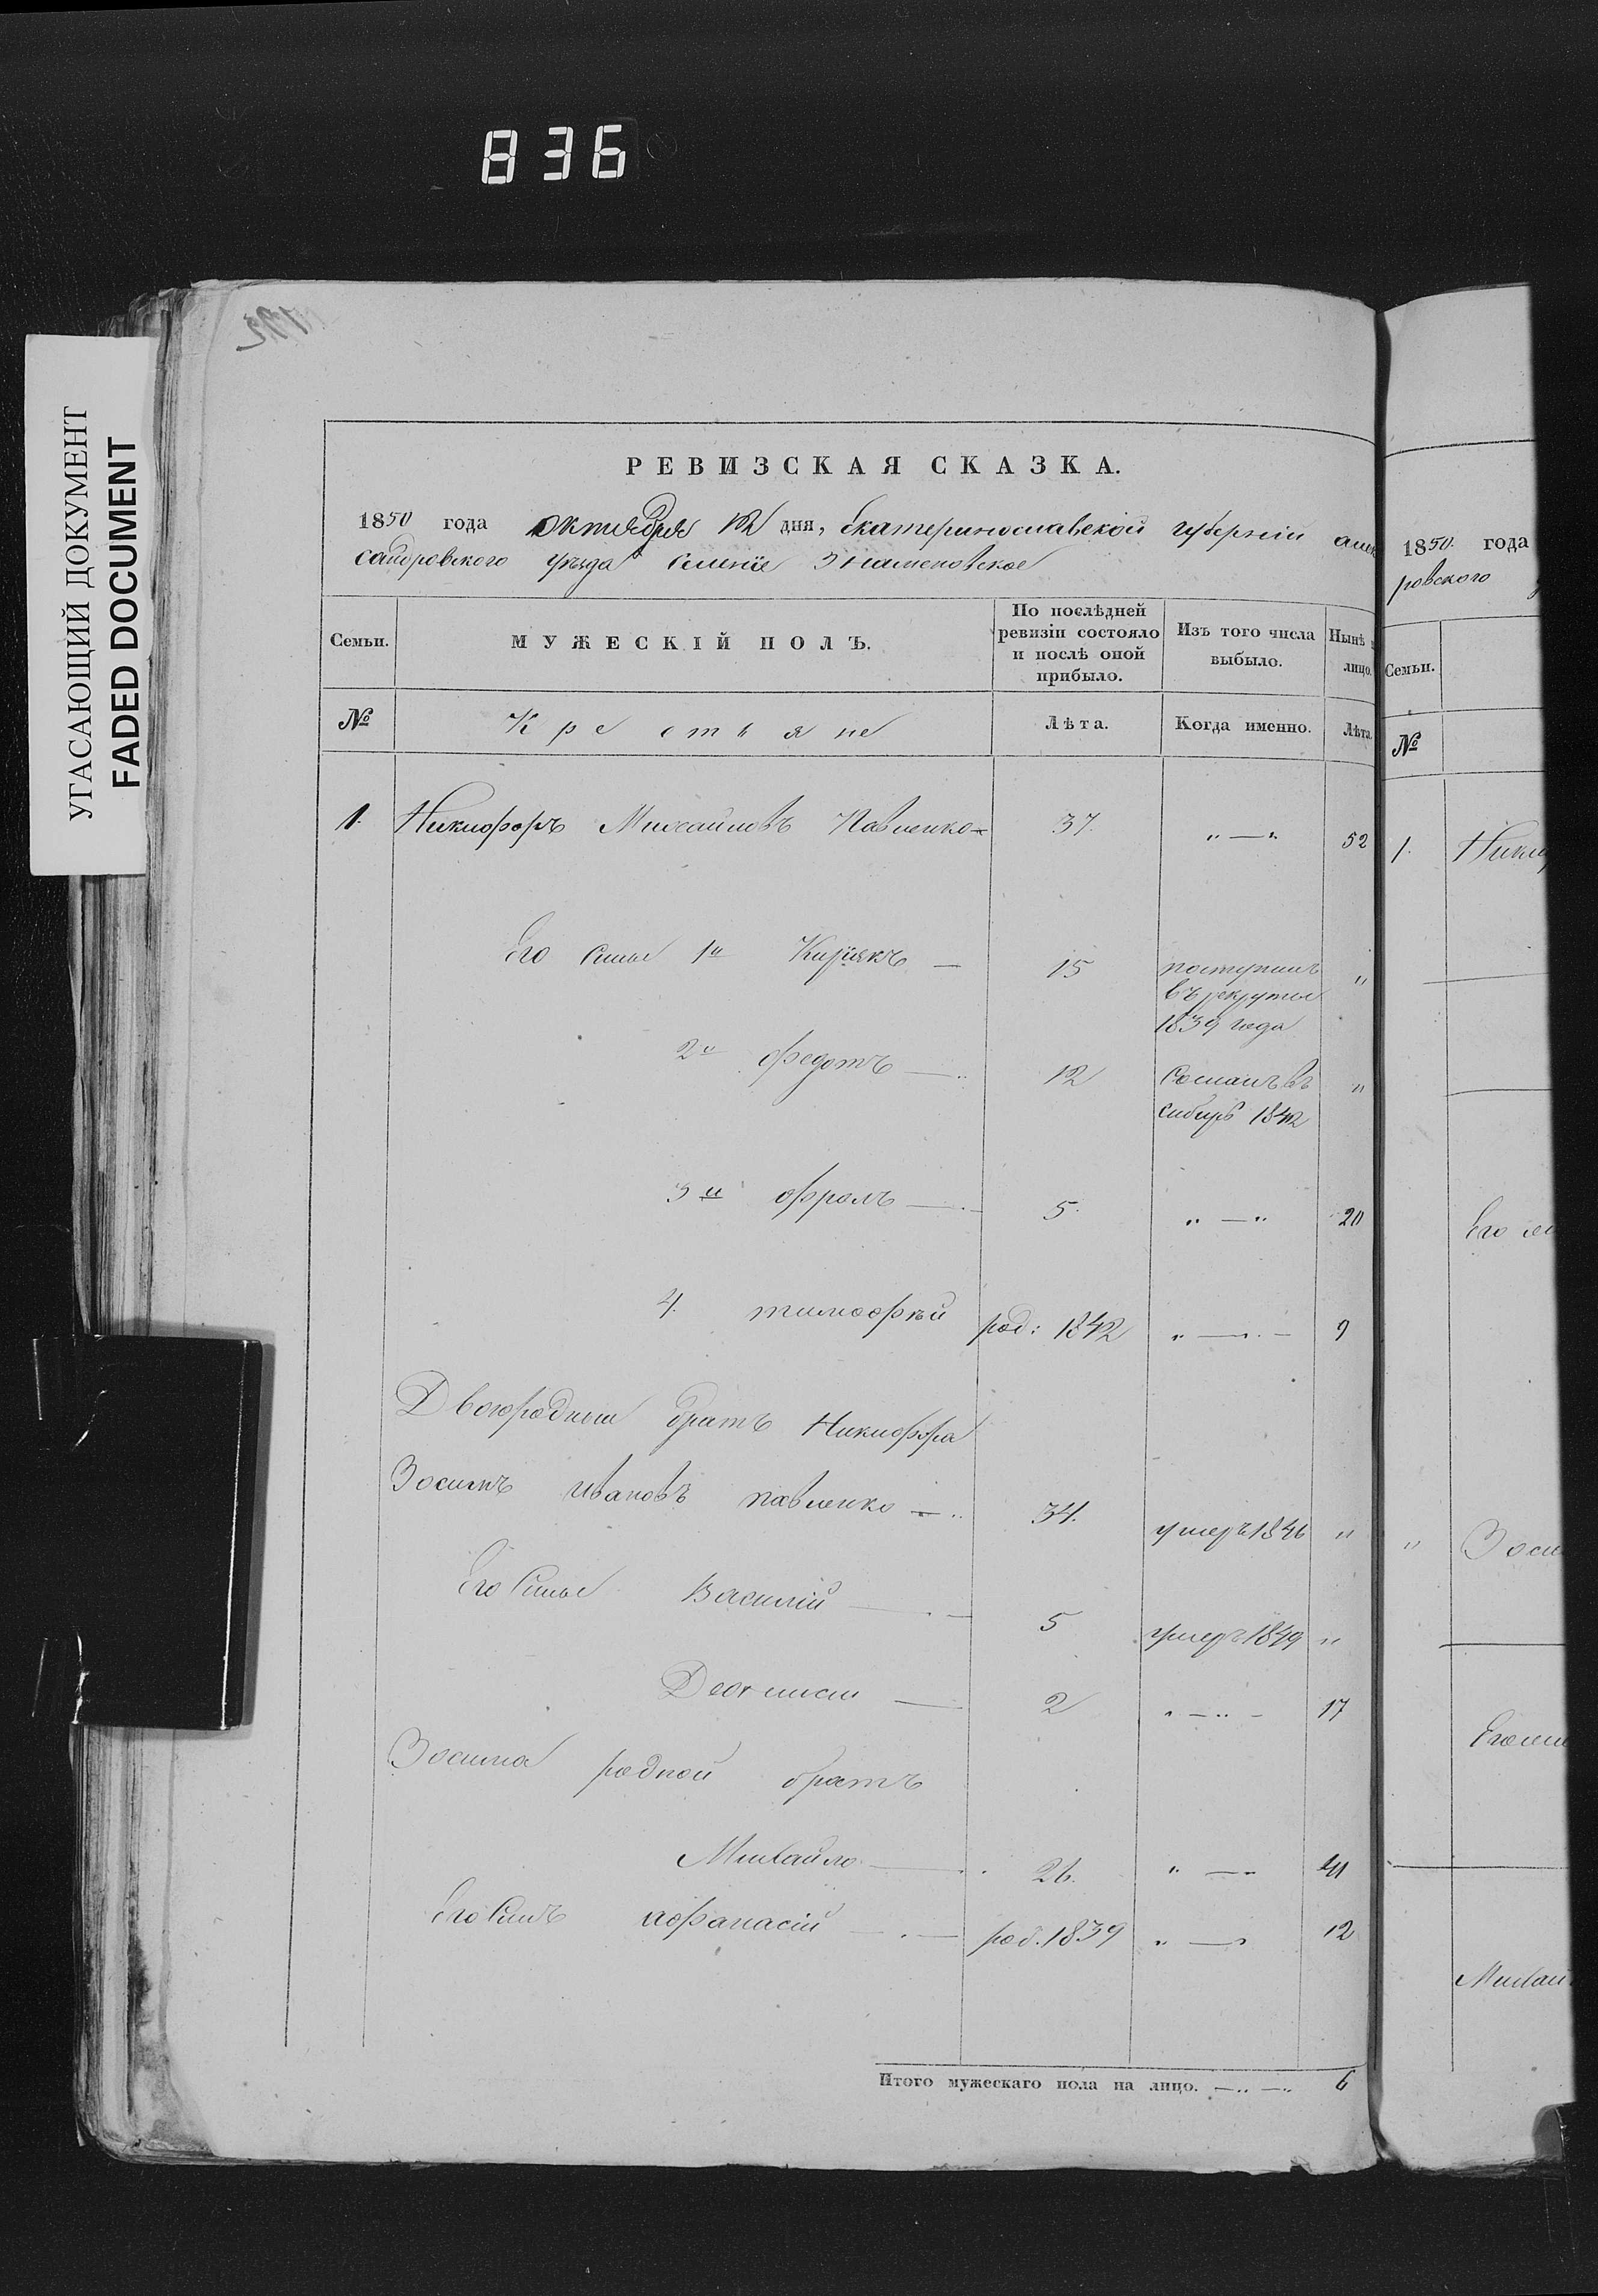 836
УГАСАЮЩИЙ ДОКУМЕНТ
FADED DOCUMENT
РЕВИЗСКАЯ СКАЗКА.
1850 года октября 12 дня, Екатеринославской губерніи алек
сандровского уезда Селеніе Знаменовское
Семьи. МУЖЕСКІЙ ПОЛЪ. По послѣдней ревизіи состояло и послѣ оной прибыло. Изъ того числа выбыло. Нынѣ лицо.
№ Крестьяне Лѣта. Когда именно. Лѣта.
1. Никифоръ Михайловъ Павленко 37. „ — „ 52
Его Сины 1й Кирїякъ — 15 поступилъ „
въ рекруты
1839 года
2й Федотъ — 12 Сосланъ въ „
сибирь 1842
3й Фролъ — 5. „ — „ 20
4. тимофѣй род: 1842 „ — 9
Двоюродный братъ Никифора
Зосимъ Ивановъ павленко — 34. умеръ 1846 „
Его Сины Василій — 5 умеръ 1849 „
— 2 „ — 17
Зосима родной братъ
Михайло — 26. „ — 41
Его Синъ Афанасій — род. 1839 „ — 12
Итого мужескаго пола на лицо. — 6
1850 года
ровского
Семьи.
№
1. Ники
Его
„ Зоси
Его
Михай